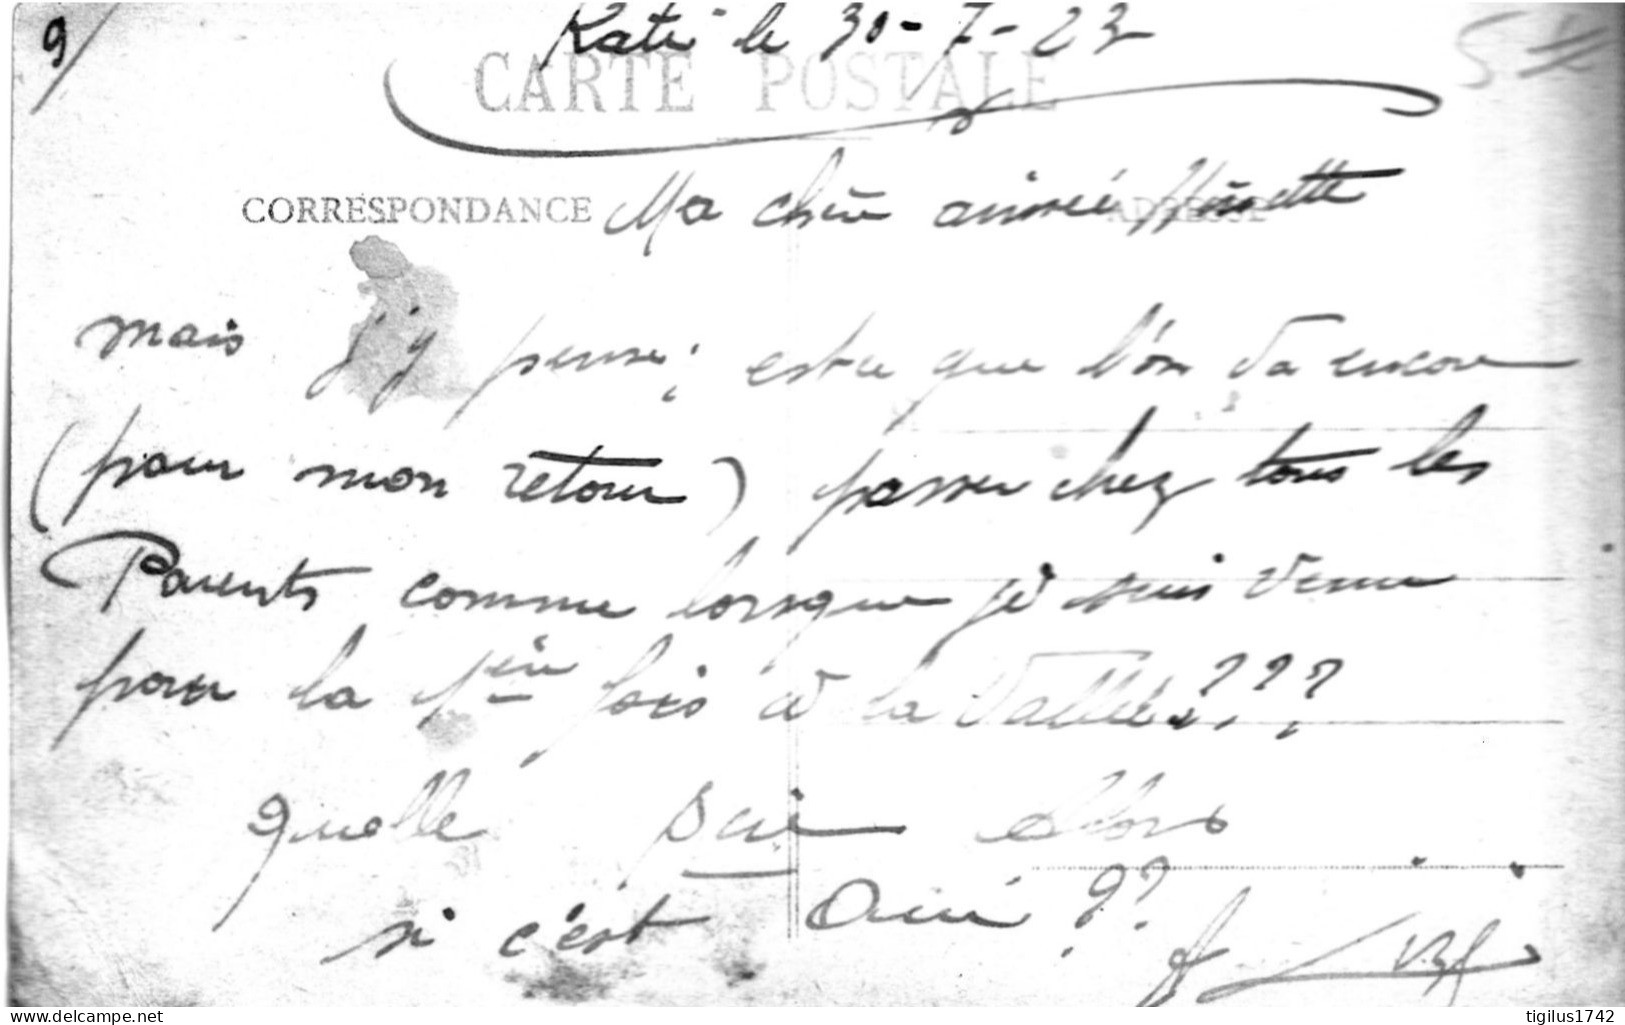 9/ Kati le 30-7-23
CARTE POSTALE
CORRESPONDANCE Ma chère aimée
ADRESSE
mais j'y pense; est ce que l'on va encore
(pour mon retour) passer chez tous les
Parents comme lorsque je suis venu
pour la 1ère fois à la Vallée???
quelle scie alors
si c'est Oui??
www.delcampe.net
tigilus1742